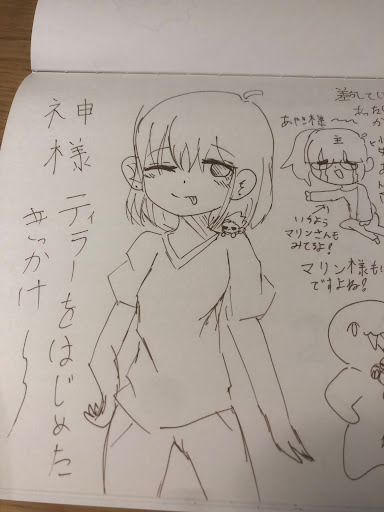 神様
ティラーをはじめた
きっかけ〜
あやき様〜〜
主
いちよう
マリンさんも
みてるよ!
マリン様も
ですよね!